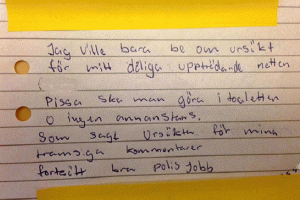 Jag ville bara be om ursikt
för mitt dåliga uppträdande natten
Pissa ska man göra i toaletten
o ingen annanstans.
Som sagt Ursäkta för mina
tramsiga kommentarer
fortsätt bra polis jobb